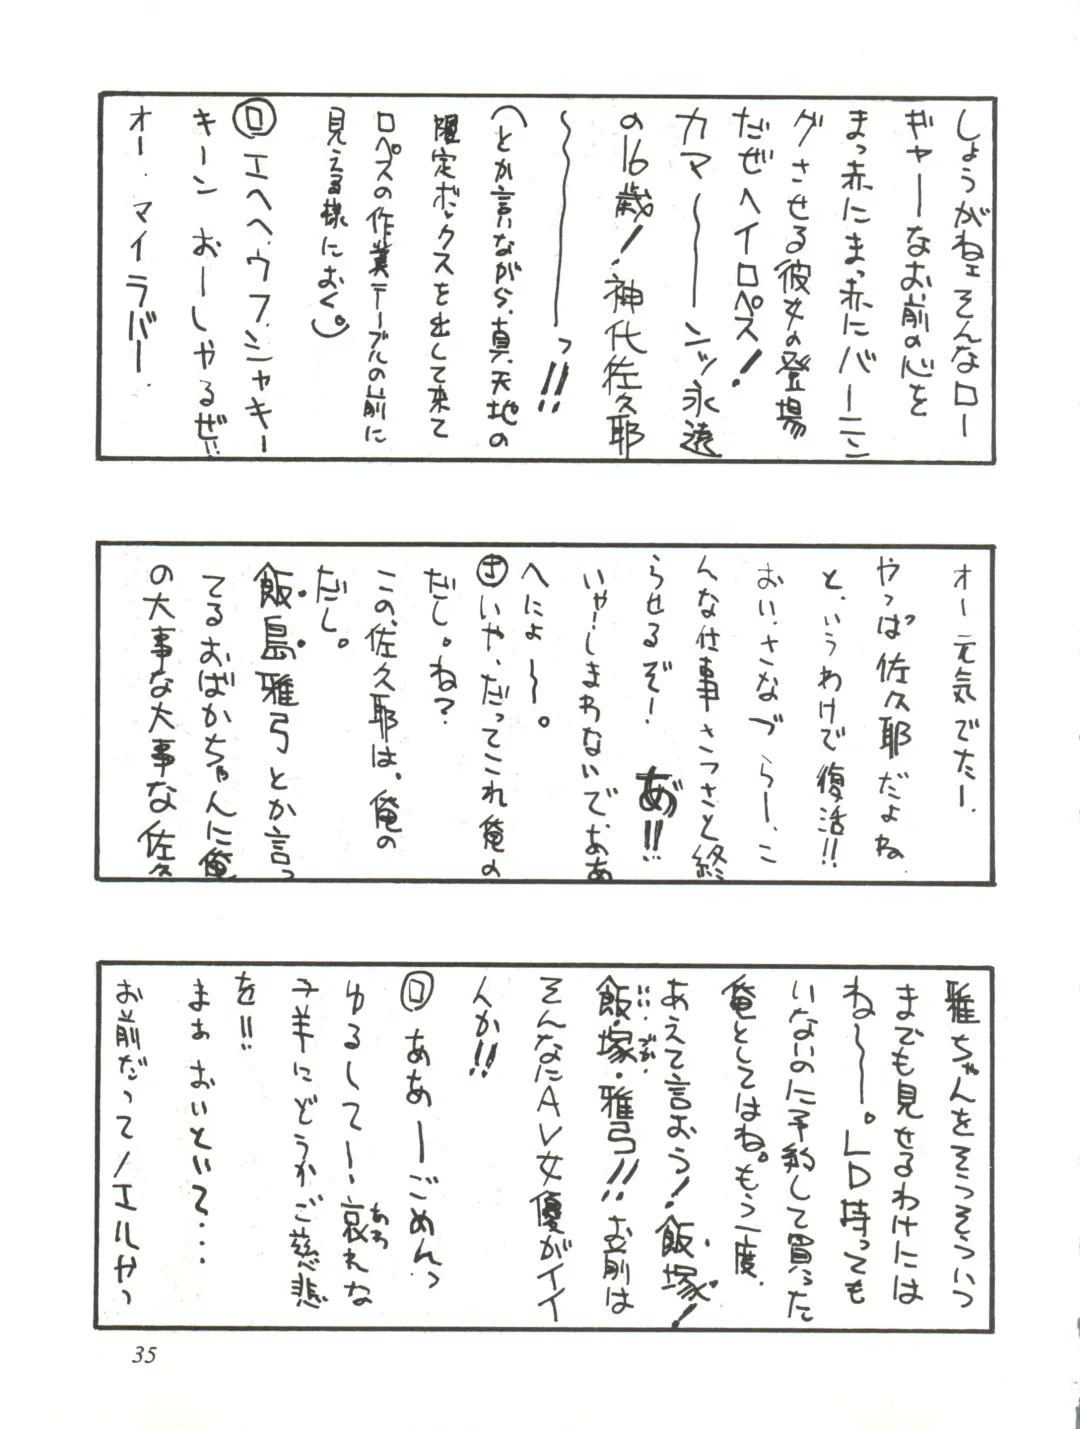 しょうがねェそんなロー
ギャーなお前の心を
まっ赤にまっ赤にバーニン
グさせる彼女の登場
だぜヘイロペス！
カマ〜ーンッ永遠
の16歳！神代佐久耶
〜〜〜っ!!
（とか言いながら、真・天地の
限定ボックスを出して来て
ロペスの作業テーブルの前に
見える様におく。）
ロ エヘヘ、ウフ、シャキー
キーン おーしゃるぜ!!
オー、マイラバー。
オー元気でたー。
やっぱ佐久耶だよね
と、いうわけで復活!!
おい、さなづらー、こ
んな仕事さっさと終
らせるぞ！ あ゛!!
いやーしまわないで、ああ
へにょ〜。
さ いや、だってこれ俺の
だし。ね？
この、佐久耶は、俺の
だし。
飯島雅弓とか言っ
てるおばかちゃんに俺
の大事な大事な佐久
雅ちゃんをそうそういつ
までも見せるわけには
ね〜〜。LD持っても
いないのに予約して買った
俺としてはね。もう一度、
あえて言おう！飯塚！
飯・塚・雅弓!!お前は
いい・づか・
そんなにAV女優がイイ
んか!!
ロ ああーごめんっ
ゆるしてー、哀れな
あわ
子羊にどうかご慈悲
を!!
まぁおいといて・・・
お前だってノエルやっ
35